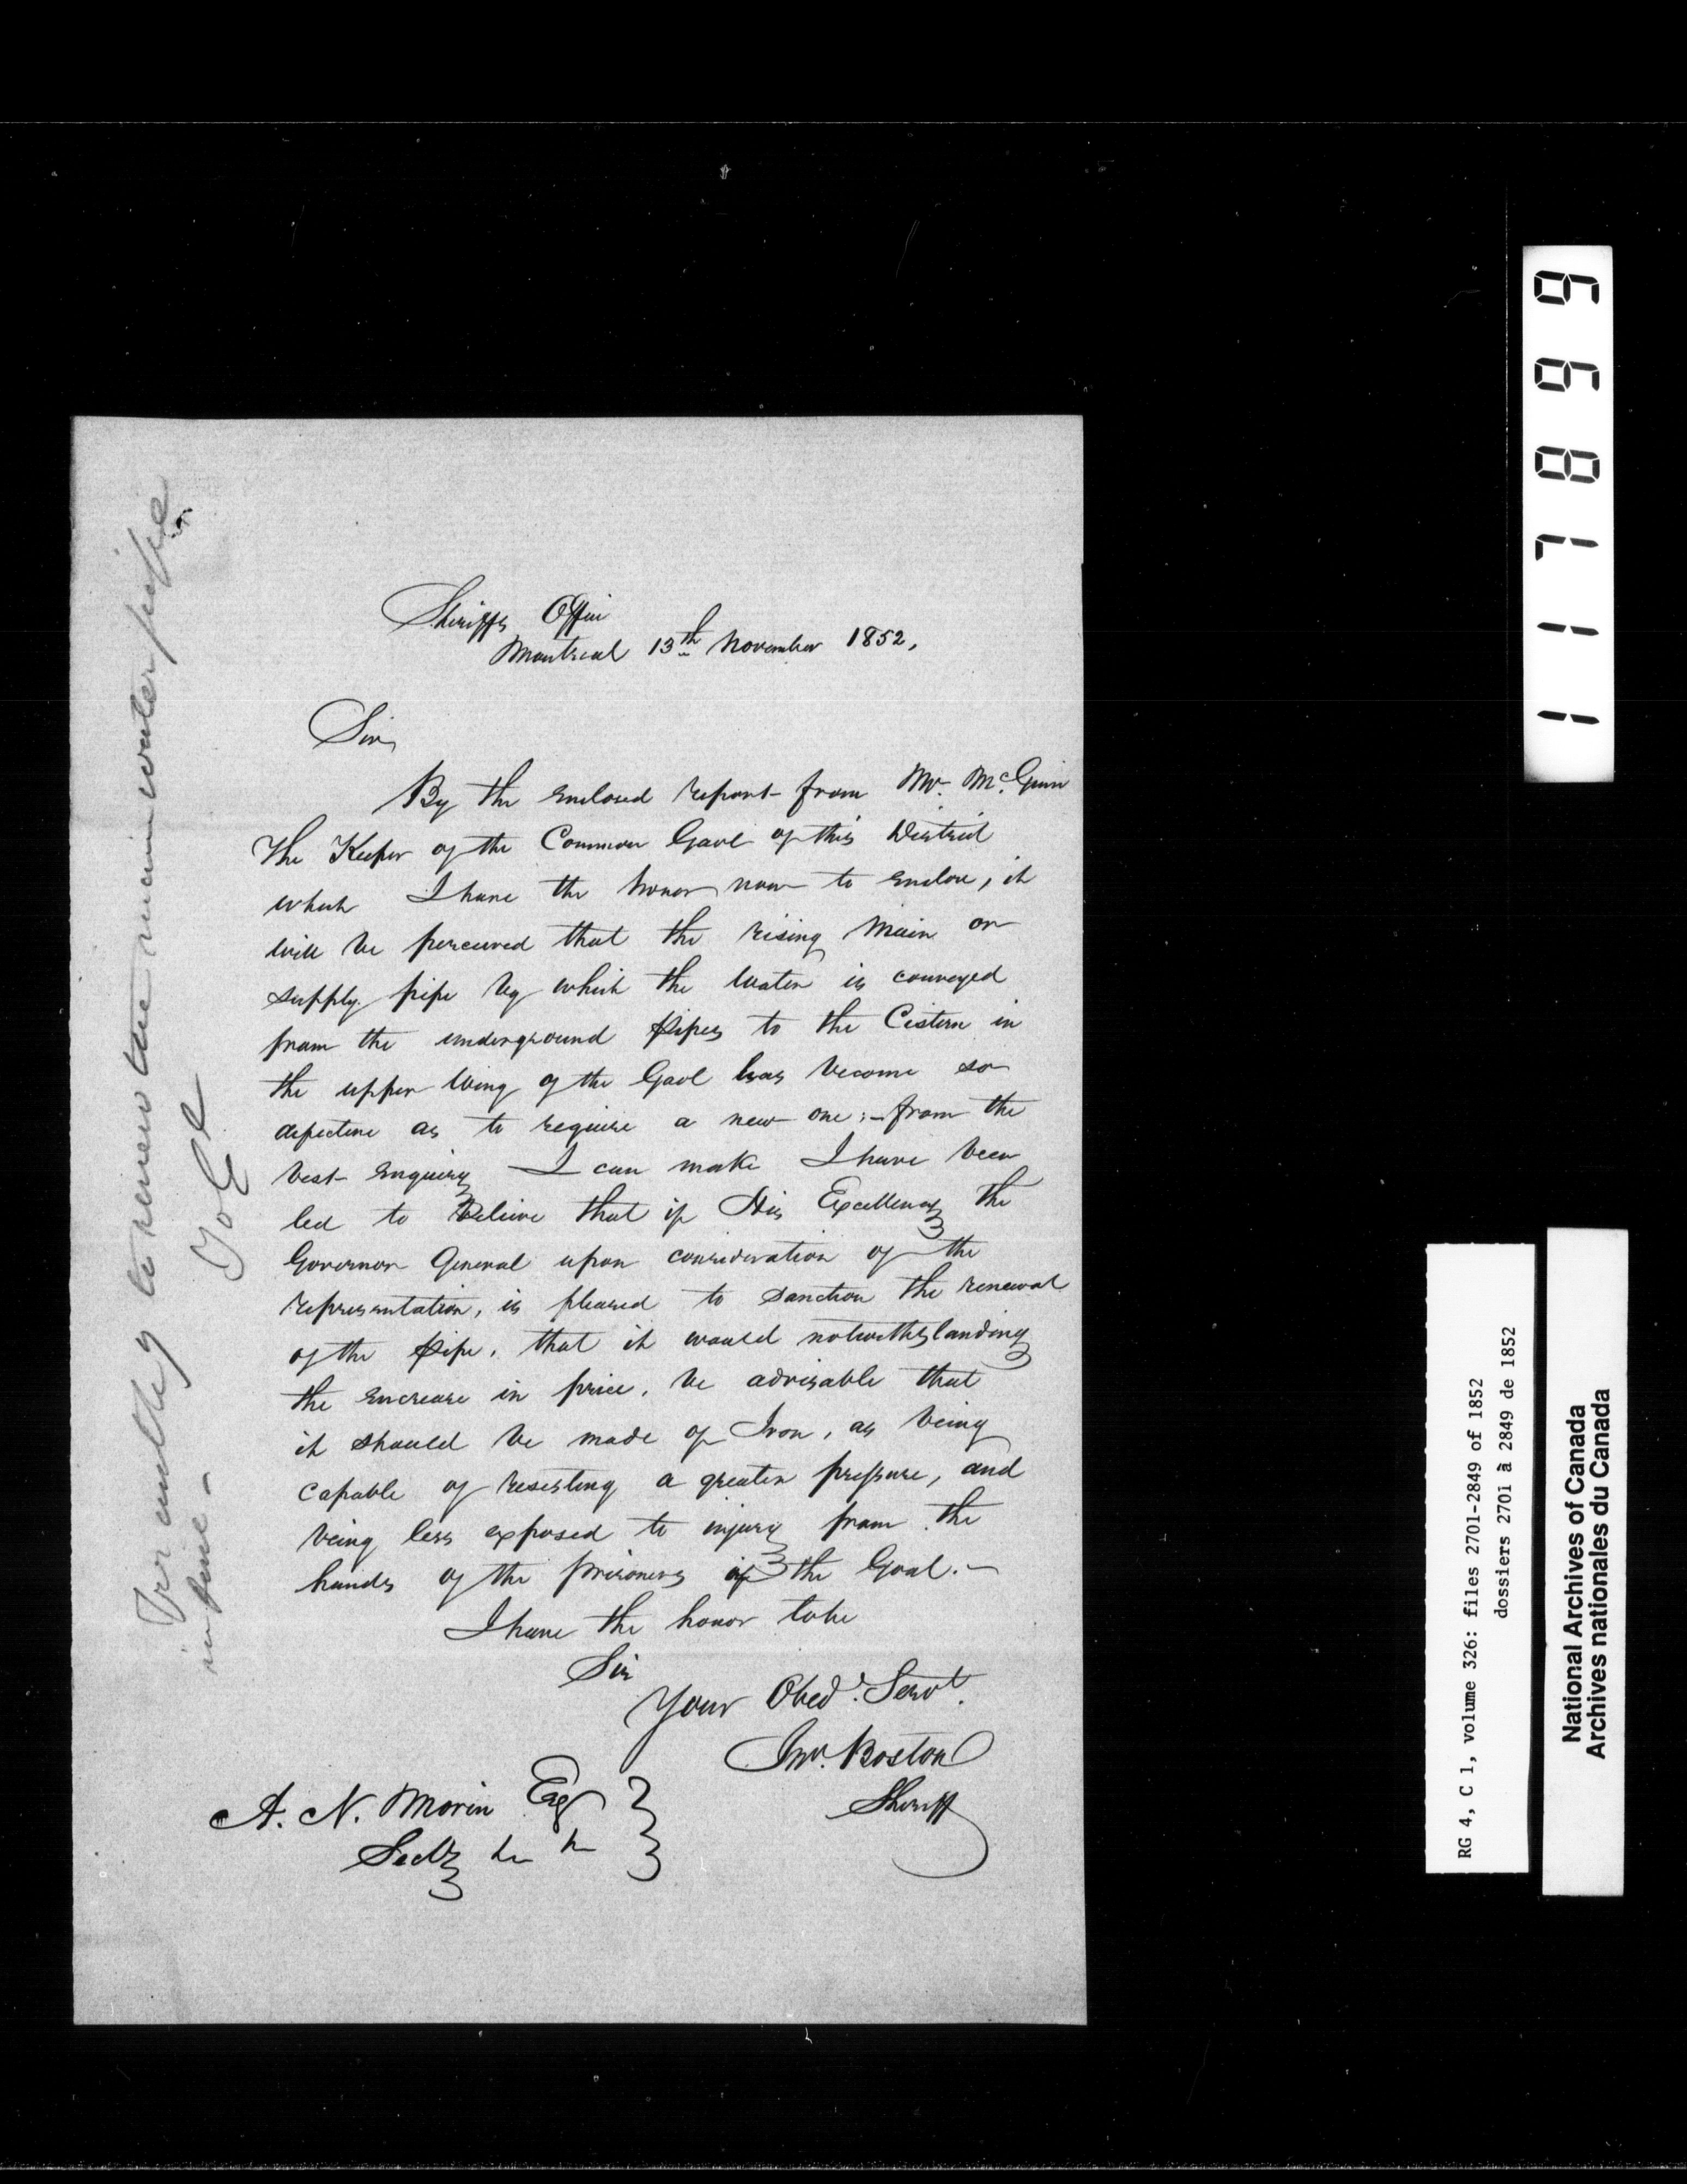 Sheriffs Office
Montreal 13th November 1852,
Sir,
By the enclosed report from Mr. McGinn
the Keeper of the Common Gaol of this District
which I have the honor now to enclose, it
will be perceived that the rising main or
supply pipe by which the water is conveyed
from the underground pipes to the Cistern in
the upper wing of the Gaol has become so
defective as to require a new one:- from the
best enquiry I can make I have been
led to believe that if His Excellency the
Governor General upon consideration of the
representation, is pleased to sanction the renewal
of the pipe, that it would notwithstanding
the encrease in price, be advisable that
it should be made of Iron, as being
capable of resisting a greater pressure, and
being less exposed to injury from the
hands of the prisoners of the Goal.-
I have the honor to be
Sir
Your Obedt. Servt.
Jno. Boston
Sheriff
A. N. Morin Esq
Secty
to renew the main water pipe
in Iron -
117899
RG 4, C 1, volume 326: files 2701-2849 of 1852
dossiers 2701 à 2849 de 1852
National Archives of Canada
Archives nationales du Canada